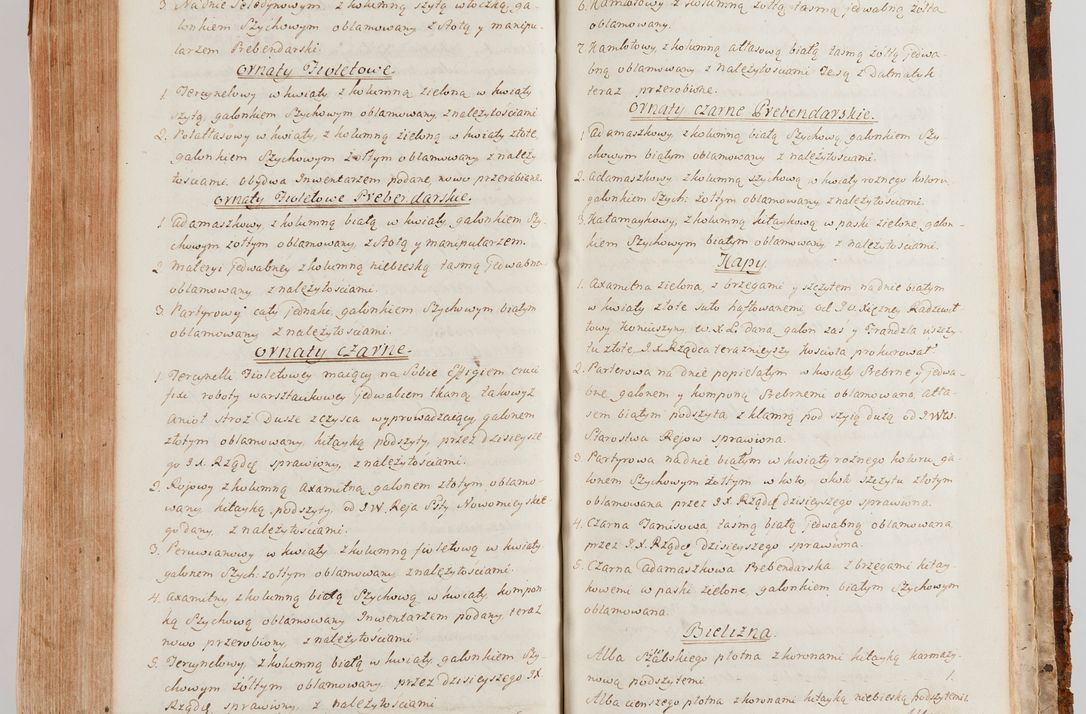 3 Na dnie Selodynowym z kolumną szytą włoczką, ga-
lonkiem Szychowym oblamowany z stołą y manipu-
larzem Prebendarski
Ornaty Fioletowe.
1. Tercynelowy w kwiaty z kolumną zieloną w kwiaty
szytą, galonkiem Szychowym oblamowany z należytościami
2. Połatłasowy w kwiaty, z kolumną zieloną w kwiaty złote,
galonkiem Szychowym żołtym oblamowany z należy-
tościami. obydwa Inwentarzem podane, nowo przerabiane.
Ornaty Fioletowe Prebendarskie.
1. Adamaszkowy, z kolumną białą w kwiaty, galonkiem Szy-
chowym żołtym oblamowany, z stołą y manipularzem.
2 Materyi jedwabney z kolumną niebieską tasmą jedwabna
oblamowany z należytościami.
3. Partyrowy cały jednaki, galonkiem Szychowym białym
oblamowany z należytościami.
Ornaty czarne.
1. Tercynelli Fioletowey maiący na Sobie Effigiem cruci
fixi roboty warsztankowey jedwabiem tkaną takowyż
Anioł Stroż Dusze z czysca wyprowadzaiący, galonem
złotym oblamowany, kitayką podszyty, przez dzisieysze
go J.X. Rządcę sprawiony, z należytościami.
2. Rojowy z kolumną Axamitną galonem złotym oblamo-
wany, kitayką podszyty, od J.W. Reja Pstły Nowomieyskie
go dany, z należytościami.
3. Peruwianowy w kwiaty z kolumną fioletową w kwiaty
galonem Szych: żołtym oblamowany z należytościami.
4. Axamitny z kolumną białą Szychową w kwiaty kompon-
ką Szychową oblamowany Inwentarzem podany, teraz
nowo przerobiony, z należytościami.
5. Tercynelowy, z kolumną białą w kwiaty, galonkiem Szy-
chowym żółtym oblamowany, przez dzisieyszego J.X.
Rządcę sprawiony, z należytościami
6. Hamasowy z kolumną żołtą, tasmą jedwabną żołtą
oblamowany.
7. Kamlotowy, z kolumną atłasową białą tasmą żółtą jedwa-
bną oblamowany z należytościami Te są z Dalmatyk
teraz przerobione.
Ornaty czarne Prebendarskie.
1 Adamaszkowy, z kolumną białą Szychową, galonkiem Szy-
chowym białym oblamowany z należytościami.
2. Adamaszkowy z kolumną szychową w kwiaty rożnego koloru
galonkiem Szych: żołtym oblamowany z należytościami.
3. Katamaykowy, z kolumną kitaykową w paski zielone, galon-
kiem Szychowym białym oblamowany z należytościami.
Kapy
1. Axamitna zielona, z brzegami y szczytem na dnie białym
w kwiaty złote suto haftowanemi, od J.O. Xiężney Radziwił
łowy Koniuszyny W.X.L. dana, galon zas y Frandzla u szczy-
tu złote J.X. Rządca teraznieyszy Koscioła prokurował
2. Parterowa na dnie popielatym w kwiaty Srebrne y jedwa-
bne galonem y komponą Srebrnemi oblamowana, atła-
sem białym podszyta z klamrą pod szyią dużą od J.W.W.
Starostwa Rejow sprawiona.
3 Partyrowa na dnie białym w kwiaty rożnego koloru, ga-
lonem Szychowym żołtym w koło, okoł szczytu złotym
oblamowana przez J.X. Rządcę dzisieyszego sprawiona.
4. Czarna Tamisowa tasmą białą jedwabną oblamowana
przez J.X. Rządcę dzisieyszego sprawiona.
5. Czarna Adamaszkowa Prebendarska z brzegami kitay-
kowemi w paski zielone, galonkiem białym Szychowym
oblamowana.
Bielizna.
Alba Szwabskiego płotna z koronami kitayką karmazy-
nową podszytemi 1.
Alba cienszego płotna z koronami kitayką niebieską podszytemi.